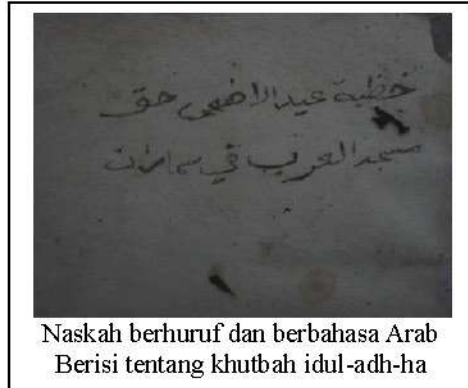 خطبة عيد الاضحى حق
مسجد العرب في سمارن
Naskah berhuruf dan berbahasa Arab
Berisi tentang khutbah idul-adh-ha